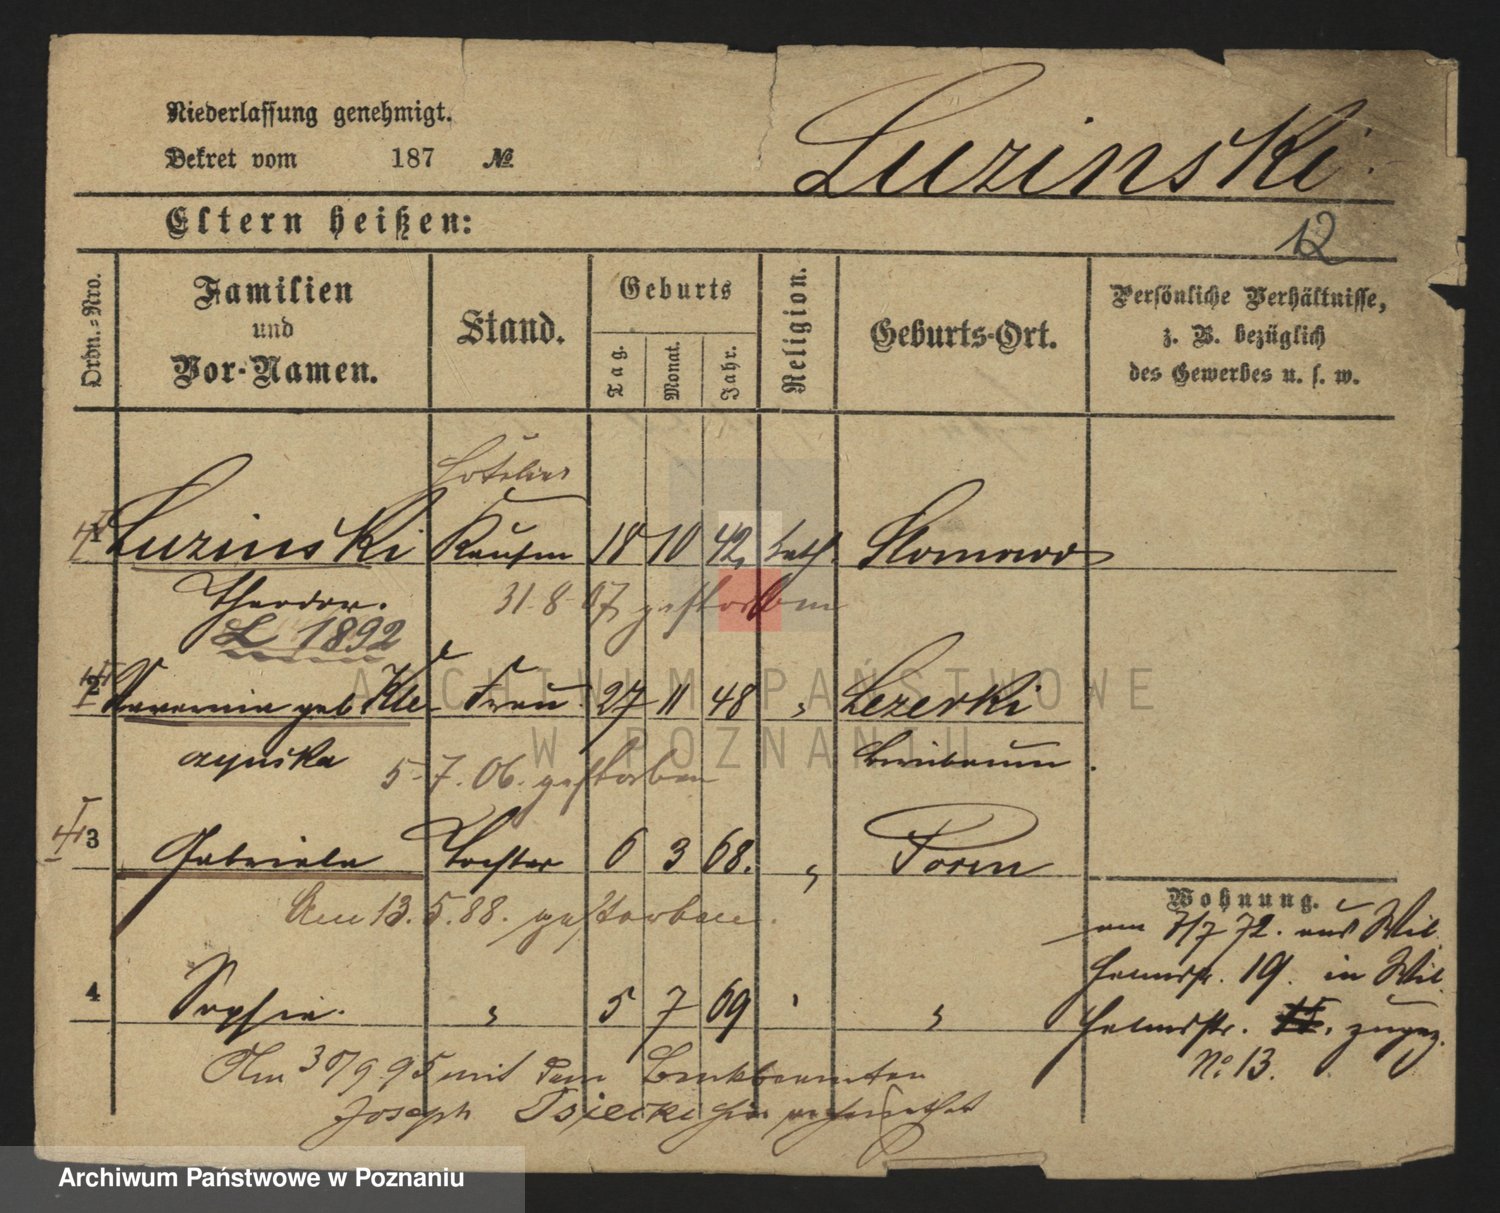 Niederlassung genehmigt.
Dekret vom 187 №
Luzinski
Eltern heißen:
12
Ordn.=Nro.
Familien
und
Vor-Namen.
Stand.
Geburts
Tag.
Monat.
Jahr.
Religion.
Geburts-Ort.
Persönliche Verhältnisse,
z. B. bezüglich
des Gewerbes u. s. w.
Hotelier
1 Luzinski Kaufm 18 10 42, kath.
Theodor.
31-8-07 gestorben
L 1892
2 geb. Kle- Frau 27 11 48 " Lezecki
czynska
Birnbaum.
5-7.06. gestorben
3 Gabriela Tochter 6 3 68. " Posen
Am 13.5.88. gestorben.
Wohnung.
am 7/7 72. aus Wil
helmstr. 19. in Wil
4 Sophie. " 5 7 69 " "
helmstr. zugez.
No 13.
Am 30/9 95 mit dem Bankbeamten
Joseph hier verheirathet
ARCHIWUM PAŃSTWOWE
W POZNANIU
Archiwum Państwowe w Poznaniu